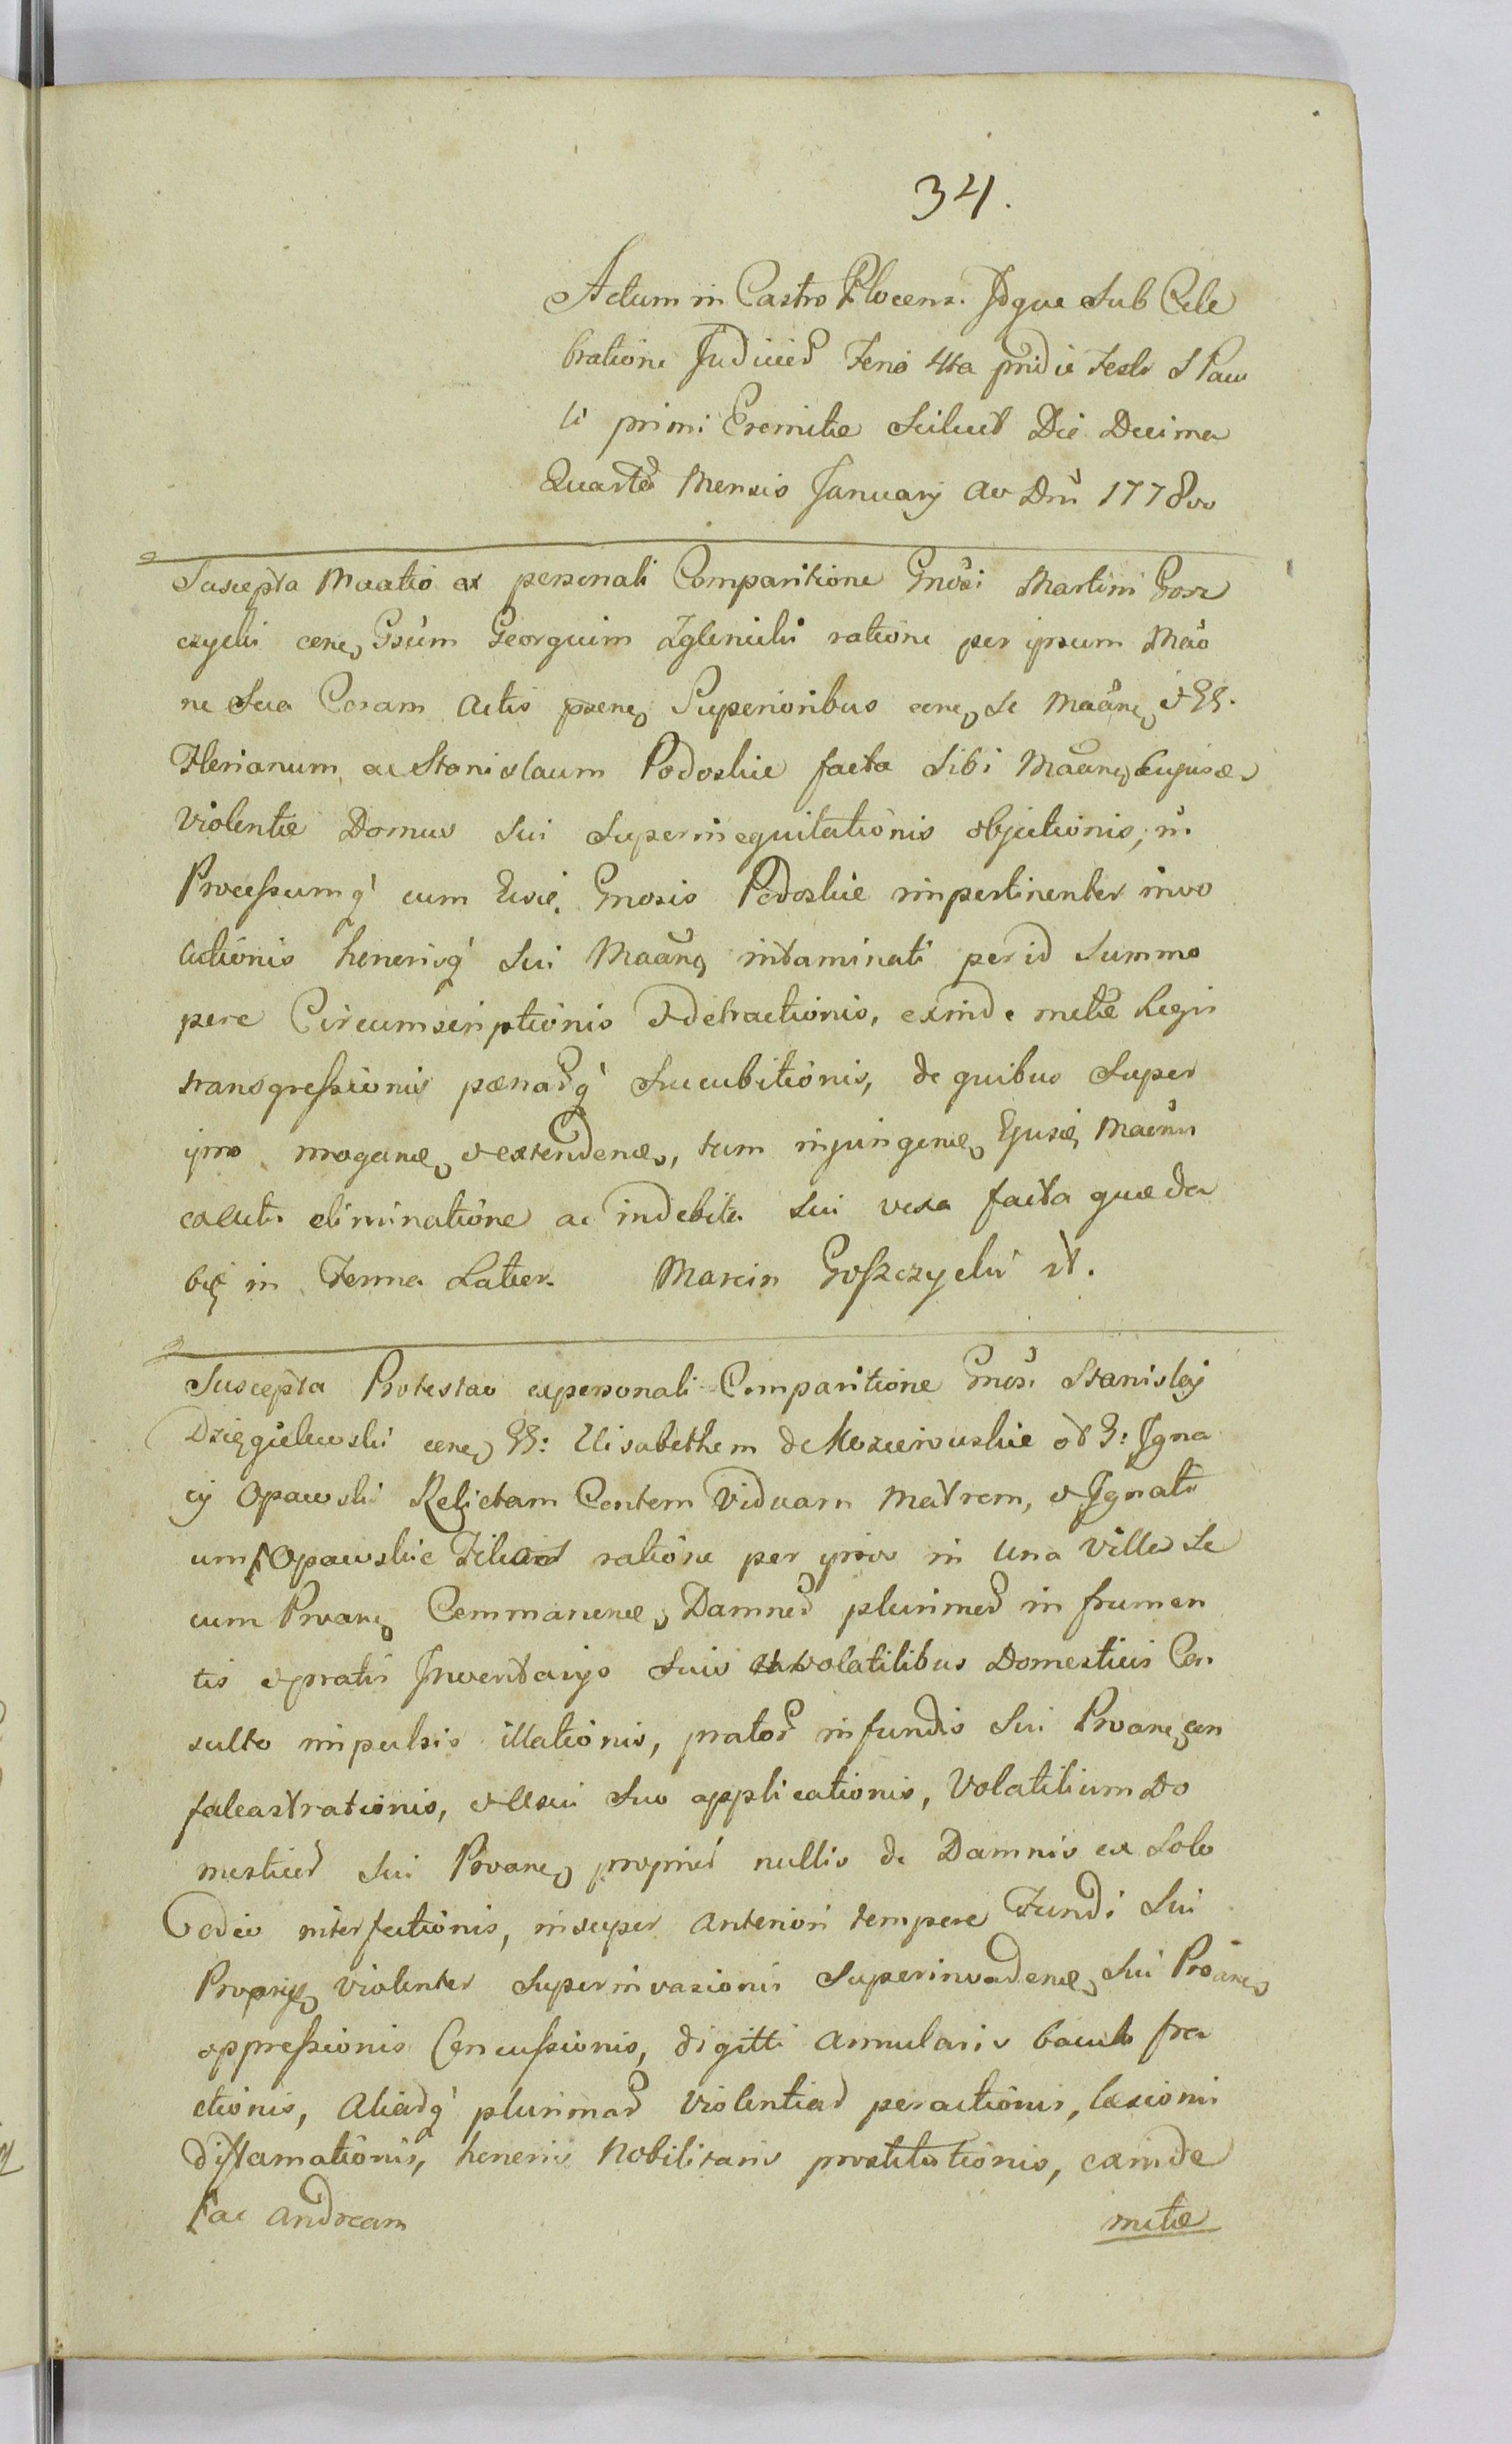 34.
Actum in Castro Plocens. Idque Sub Cele
bratione Judicied Feria 4ta pridie Festi S Pau
li primi Eremitæ Scilicet Die Decima
Quarta Mensis Januarij Ao Dni 1778vo
Suscepta Maatio ex personali Comparitione Gnosi Martini Gosz
czycki cene, Gsum Georgium Zglenicki ratione per ipsum Mão
ne Sua Coram Actis psene, Superioribus cene, se Maane, & GG.
Florianum ac Stanislaum Podoskie facta Sibi Maane,
Violentiæ Domus Sui Superinequitationis objectionis, in
Processumq cum Gnosis Podoskie impertinenter invo
lutionis honorisq Sui Maane, intaminati per id Summo
pere Circumscriptionis & detractionis, exinde metæ Legis
transgressionis pænarq Succubitionis, de quibus Super
ipso irrogane, & extendene, tum injungene,
eliminatione ac indebite Sui vexa facta quæ da
in Forma Latior. Marcin Goszczycki
Suscepta Protestao ex personali Comparitione Gnosi Stanislaj
Dzięgielewski cene, GG: Elisabetham de olim G: Igna
cij Opawski Relictam Contem Viduam Matrem, & Ignati
um Opawskie Filios ratione per ipsos in una Villa Se
cum Proane, Commanene, Damned plurimed in frumen
tis & pratis Inventarijs Suis volatilibus Domesticis Con
sulto impulsis illationis, prator in fundis Sui Proane, con
falcastrationis, & Usui Suo applicationis, Volatilium Do
mesticod Sui Proane, nullis de Damnis ex Solo
odio interfectionis, insuper anteriori tempore Fundi Sui
Proprij violenter Superinvasionis Superinvadene, Sui Proane,
oppressionis Concussionis, digitti annularis baculo fra
ctionis, aliarq plurimar violentiar peractionis, læsionis
diffamationis, honoris Nobilitaris prostitutionis, exinde
ac Andream
metæ